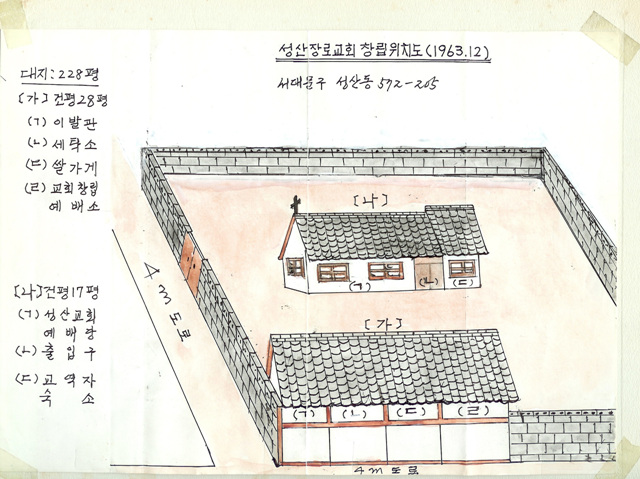 성산장로교회 창립위치도(1963.12)
서대문구 성산동 592-205
대지:228평
[가] 건평28평
(ㄱ) 이발관
(ㄴ) 세탁소
(ㄷ) 쌀가게
(ㄹ) 교회창립
예배소
[나] 건평17평
(ㄱ) 성산교회
예배당
(ㄴ) 출입구
(ㄷ) 교역자
숙소
4m 도로
[나]
(ㄱ) (ㄴ) (ㄷ)
[가]
(ㄱ) (ㄴ) (ㄷ) (ㄹ)
4m 도로